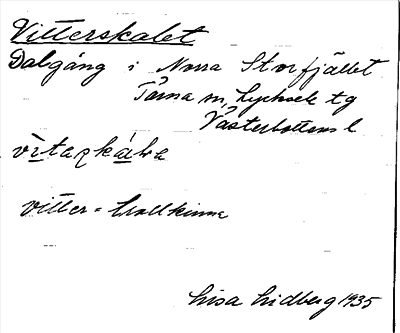 Vitterskalet
Dalgång i Norra Storfjället
Tärna sn, Lycksele tg
Västerbottens l
vitter = trollkinna
Lisa Lidberg 1935